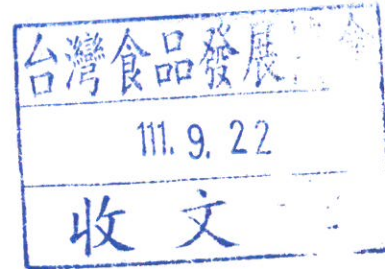 台灣食品發展
111.9.22
收文